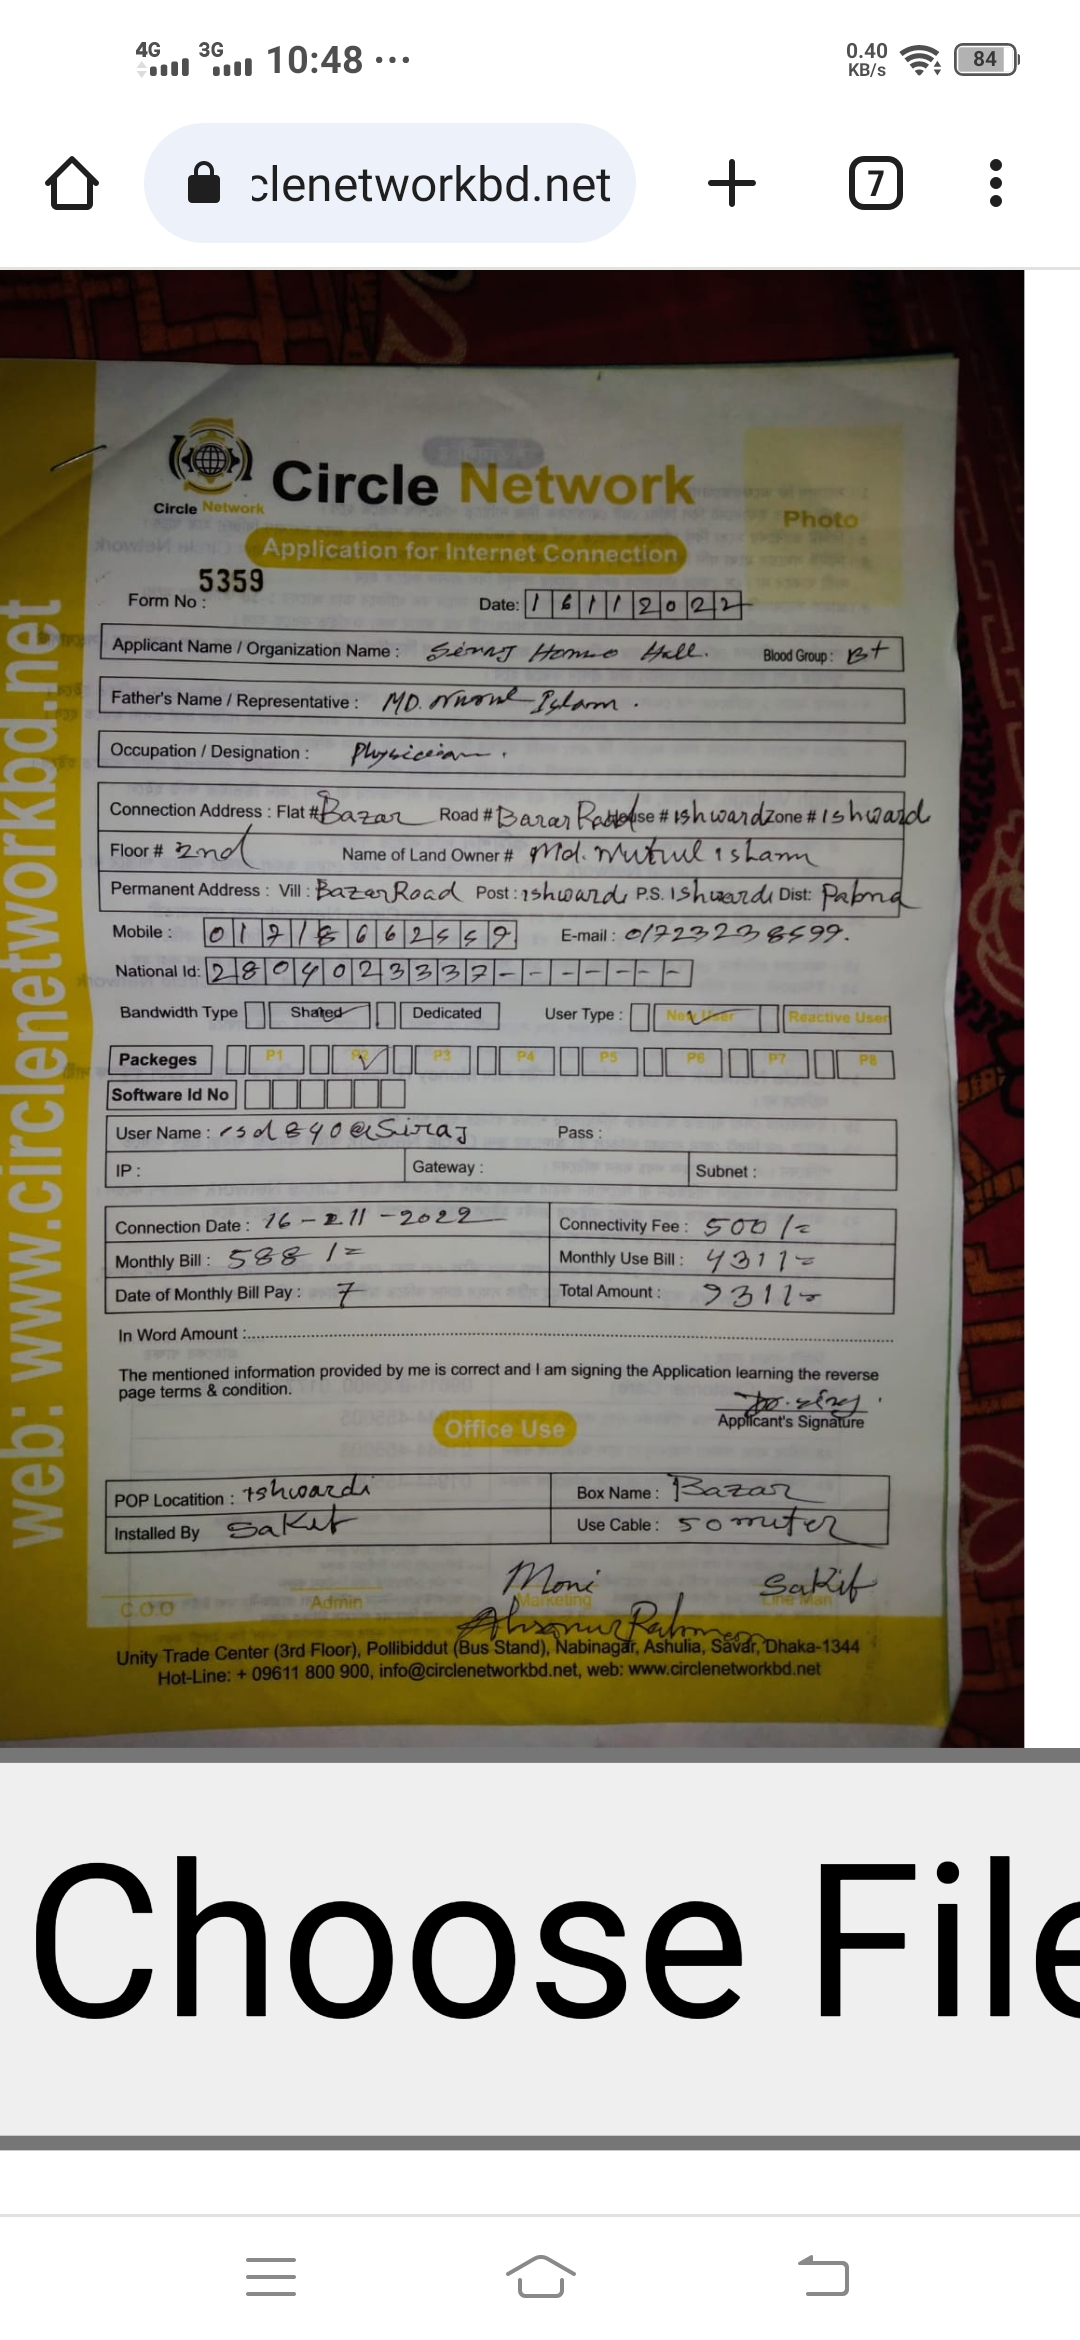 4G 3G 10:48 ... 0.40 KB/s 84
clenetworkbd.net + 7
web: www.circlenetworkbd.net
Circle Network
Circle Network
Photo
Application for Internet Connection
Form No : 5359
Date: 16112022
Applicant Name / Organization Name : Homeo Hall. Blood Group : B+
Father's Name / Representative : MD. Islam .
Occupation / Designation : Physician .
Connection Address : Flat # Bazar Road # Bazar Road House # Ishwardi Zone # Ishward
Floor # 2nd Name of Land Owner # Md.
Permanent Address : Vill : Bazar Road Post : Ishwardi P.S. Ishwardi Dist: Pabna
Mobile : E-mail : 01723238599.
National Id: 2804023337-------
Bandwidth Type Shated Dedicated User Type : New User Reactive User
Packeges P1 P2 P3 P4 P5 P6 P7 P8
Software Id No
User Name : isd840@Siraj Pass :
IP : Gateway : Subnet :
Connection Date : 16-11-2022 Connectivity Fee : 500/=
Monthly Bill : 588/= Monthly Use Bill : 431/=
Date of Monthly Bill Pay : 7 Total Amount : 931/=
In Word Amount :
The mentioned information provided by me is correct and I am signing the Application learning the reverse
page terms & condition.
Applicant's Signature
Office Use
POP Locatition : Ishwardi Box Name : Bazar
Installed By Sakit Use Cable : 50 muter
Moni Sakif
C.O.O Admin Marketing Line Man
Ahsanur Rahman
Unity Trade Center (3rd Floor), Pollibiddut (Bus Stand), Nabinagar, Ashulia, Savar, Dhaka-1344
Hot-Line: + 09611 800 900, info@circlenetworkbd.net, web: www.circlenetworkbd.net
Choose File